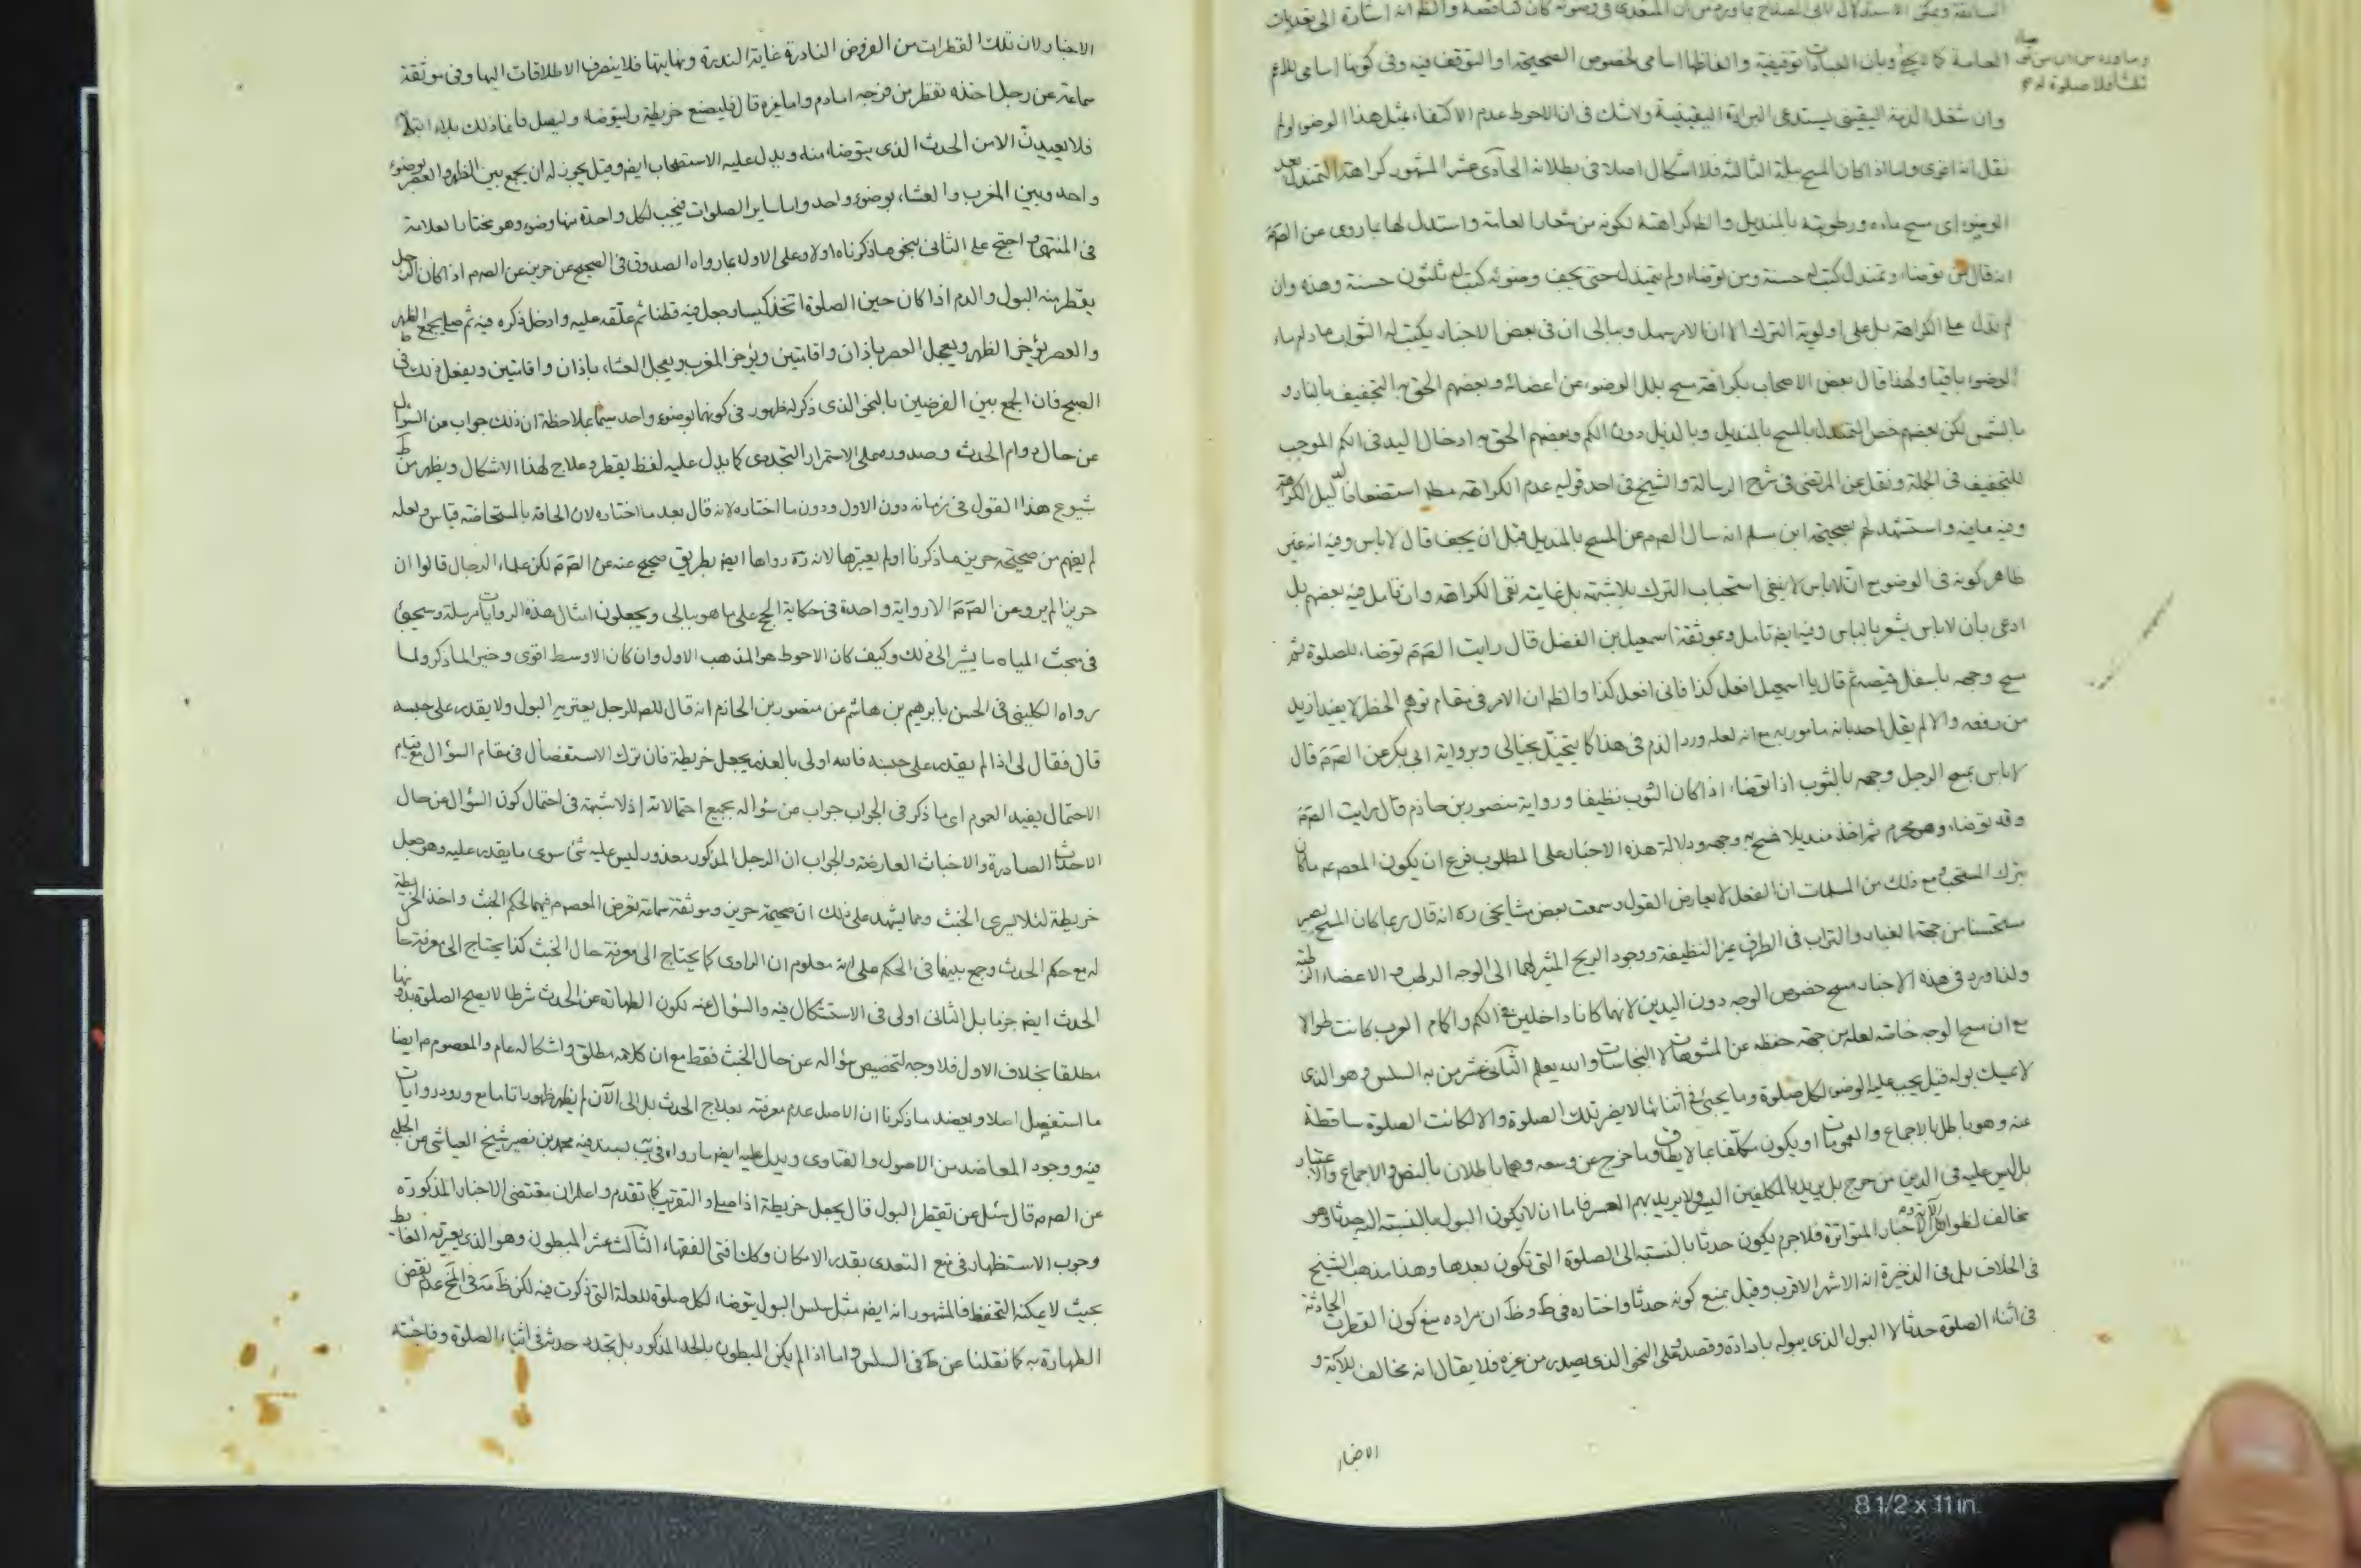 السابقة ويمكن الاستدلال
العامة كما لا يخفى وبان العبادات توقيفية والفاظها اسامي لخصوص الصحيحة او التوقف فيه وفى كونها اسامي للاعم
وما ورد من ان من توضا ثلثا فلا صلوة له
وان شغل الذمة اليقينى يستدعى البراءة اليقينية ولا شك فى ان الاحوط عدم الاكتفاء بمثل هذا الوضوء لو لم
نقل انه اقوى واما اذا كان المسح ببلة الثالثة فلا اشكال اصلا فى بطلانه الحادى عشر المشهور كراهة التمندل بعد
الوضوء اى مسح ماءه ورطوبته بالمنديل والظ كراهته لكونه من شعار العامة واستدل لها بما روى عن الصم
انه قال من توضاء وتمندل كتب له حسنة ومن توضاء ولم يتمندل حتى يجف وضوئه كتب له ثلثون حسنة وهذه وان
لم تدل على الكراهة بل على اولوية الترك الا ان الامر سهل وببالى ان فى بعض الاخبار يكتب له الثواب ما دام ماء
الوضوء باقيا ولهذا قال بعض الاصحاب بكراهة مسح بلل الوضوء عن اعضائه وبعضهم الحق به التجفيف بالنار و
بالشمس لكن بعضهم خص التمندل بالمسح بالمنديل وبالذيل دون الكم وبعضهم الحق به ادخال اليد فى الكم الموجب
للتجفيف فى الجملة ونقل عن المرتضى فى شرح الرسالة والشيخ فى احد قوليه عدم الكراهة مط استضعافا لدليل الكراهة
وفيه ما فيه واستشهد لهم بصحيحة ابن مسلم انه سال الصم عن المسح بالمنديل قبل ان يجف قال لا باس وفيه انه غير
ظاهر كونه فى الوضوء مع ان لا باس لا ينفى استحباب الترك بلا شبهة بل غايته نفى الكراهة وان تامل فيه بعضهم بل
ادعى بان لا باس يشعر بالباس وفيه ايض تامل وبموثقة اسمعيل بن الفضل قال رايت الصم توضاء للصلوة ثم
مسح وجهه باسفل قميصه ثم قال يا اسمعيل افعل كذا فانى افعل كذا والظ ان الامر فى مقام توهم الحظر لا يفيد ازيد
من رفعه والا لم يقل احد بانه مامور به مع انه لعله ورد الذم فى هذا كما يتخيل بخيالى وبرواية ابى بكر عن الصم قال
لا باس بمسح الرجل وجهه بالثوب اذا توضاء اذا كان الثوب نظيفا ورواية منصور بن حازم قال رايت الصم
وقد توضاء وهو محرم ثم اخذ منديلا فمسح به وجهه ودلالة هذه الاخبار على المطلوب فرع ان يكون المعصوم ما كان
يترك المستحب ومع ذلك من المسلمات ان الفعل لا يعارض القول وسمعت بعض مشايخى ره انه قال ربما كان المسح يصير
مستحسنا من جهة الغبار والتراب فى الطرق غير النظيفة ووجود الريح المثير لهما الى الوجه الرطب والاعضاء الرطبة
ولذا ورد فى هذه الاخبار مسح خصوص الوجه دون اليدين لانهما كانا داخلين فى الكم واكام العرب كانت طوالا
مع ان مسح الوجه خاصة لعله من جهة حفظه عن المشوهات لا النجاسات والله يعلم الثانى عشر من به السلس وهو الذى
لا يمسك بوله قيل يجب عليه الوضوء لكل صلوة وما يجىء فى اثنائها لا يضر تلك الصلوة والا لكانت الصلوة ساقطة
عنه وهو باطل بالاجماع والعمومات او يكون مكلفا بما لا يطاق وما خرج عن وسعه وهما باطلان بالنص والاجماع والاعتبار
بل ليس عليه فى الدين من حرج بل يريد بالمكلفين اليسر ولا يريد بهم العسر فاما ان لا يكون البول بالنسبة اليه حدثا وهو
مخالف لظواهر الاية والاخبار المتواترة فلا جرم يكون حدثا بالنسبة الى الصلوة التى تكون بعدها وهذا مذهب الشيخ
فى الخلاف بل فى الذخيرة انه الاشهر الاقرب وقيل بمنع كونه حدثا واختاره فى ط وظ ان مراده منع كون القطرات الحادثة
فى اثناء الصلوة حدثا لا البول الذى يبوله بارادة وقصد على النحو الذى يصدر من غيره فلا يقال انه مخالف للآية و
الاخبار
الاخبار لان تلك القطرات من الفروض النادرة غاية الندرة ونهايتها فلا ينصرف الاطلاقات اليها وفى موثقة
سماعة عن رجل اخذه تقطر من فرجه اما دم واما غيره قال فليضع خريطة وليتوضاء وليصل فانما ذلك بلاء ابتلى
فلا يعيدن الا من الحدث الذى يتوضاء منه ويدل عليه الاستصحاب ايض وقيل يجوز له ان يجمع بين الظهر والعصر بوضوء
واحد وبين المغرب والعشاء بوضوء واحد واما ساير الصلوات فيجب لكل واحدة منها وضوء وهو مختار العلامة
فى المنتهى احتج على الثانى بنحو ما ذكرناه اولا وعلى الاول بما رواه الصدوق فى الصحيح عن حريز عن الصم اذا كان الرجل
يقطر منه البول والدم اذا كان حين الصلوة اتخذ كيسا وجعل فيه قطنا ثم علقه عليه وادخل ذكره فيه ثم صلى يجمع الظهر
والعصر يؤخر الظهر ويعجل العصر باذان واقامتين ويؤخر المغرب ويعجل العشاء باذان واقامتين ويفعل ذلك فى
الصبح فان الجمع بين الفرضين بالنحو الذى ذكر له ظهور فى كونهما بوضوء واحد سيما بملاحظة ان ذلك جواب من السؤال
عن حال دوام الحدث وصدوره على الاستمرار التجددى كما يدل عليه لفظ يقطر وعلاج لهذا الاشكال ويظهر من ط
شيوع هذا القول فى زمانه دون الاول ودون ما اختاره لانه قال بعد ما اختاره لان الحاقه بالمستحاضة قياس ولعله
لم يفهم من صحيحة حريز ما ذكرنا او لم يعتبرها لانه ره رواها ايض بطريق صحيح عنه عن الصم لكن علماء الرجال قالوا ان
حريزا لم يرو عن الصم الا رواية واحدة فى حكاية الحج على ما هو ببالى ويجعلون امثال هذه الروايات مرسلة وسيجىء
فى مبحث المياه ما يشير الى ذلك وكيف كان الاحوط هو المذهب الاول وان كان الاوسط اقوى وخير الما ذكر ولما
رواه الكلينى فى الحسن بابرهيم بن هاشم عن منصور بن الحازم انه قال للصم الرجل يعتريه البول ولا يقدر على حبسه
قال فقال لى اذا لم يقدر على حبسه فالله اولى بالعذر يجعل خريطة فان ترك الاستفصال فى مقام السؤال مع قيام
الاحتمال يفيد العموم اى ما ذكر فى الجواب جواب من سؤاله بجميع احتمالاته اذ لا شبهة فى احتمال كون السؤال عن حال
الاحداث الصادرة والاخباث العارضة والجواب ان الرجل المذكور معذور ليس عليه شئ سوى ما يقدر عليه وهو جعل
خريطة لئلا يسرى الخبث ومما يشهد على ذلك ان صحيحة حريز وموثقة سماعة تعرض المعصوم فيهما لحكم الخبث واخذ الخريطة
له مع حكم الحدث وجمع بينهما فى الحكم على انه معلوم ان الراوى كما يحتاج الى معرفة حال الخبث كذا يحتاج الى معرفة حال
الحدث ايض جزما بل الثانى اولى فى الاستشكال فيه والسؤال عنه لكون الطهارة عن الحدث شرطا لا يصح الصلوة بدونها
مطلقا بخلاف الاول فلا وجه لتخصيص سؤاله عن حال الخبث فقط مع ان كلامه مطلق واشكاله عام والمعصوم م ايضا
ما استفصل اصلا ويعضد ما ذكرنا ان الاصل عدم معرفته بعلاج الحدث بل الى الآن لم يظهر ظهورا تاما مع ورود روايات
فيه ووجود المعاضد من الاصول والفتاوى ويدل عليه ايض ما رواه فى يب بسند فيه محمد بن نصير شيخ العياشى عن الحلبى
عن الصم قال سئل عن تقطر البول قال يجعل خريطة اذا صلى والتقريب كما تقدم واعلم ان مقتضى الاخبار المذكورة
وجوب الاستظهار فى منع التعدى بقدر الامكان وكك افتى الفقهاء الثالث عشر المبطون وهو الذى يعتريه الغائط
بحيث لا يمكنه التحفظ فالمشهور انه ايض مثل سلس البول يتوضاء لكل صلوة للعلة التى ذكرت فيه لكن ظ مه فى المخ عدم نقض
الطهارة به كما نقلنا عن ط فى السلس واما اذا لم يكن المبطون بالحد المذكور بل تجدد حدثه فى اثناء الصلوة وفاجئته